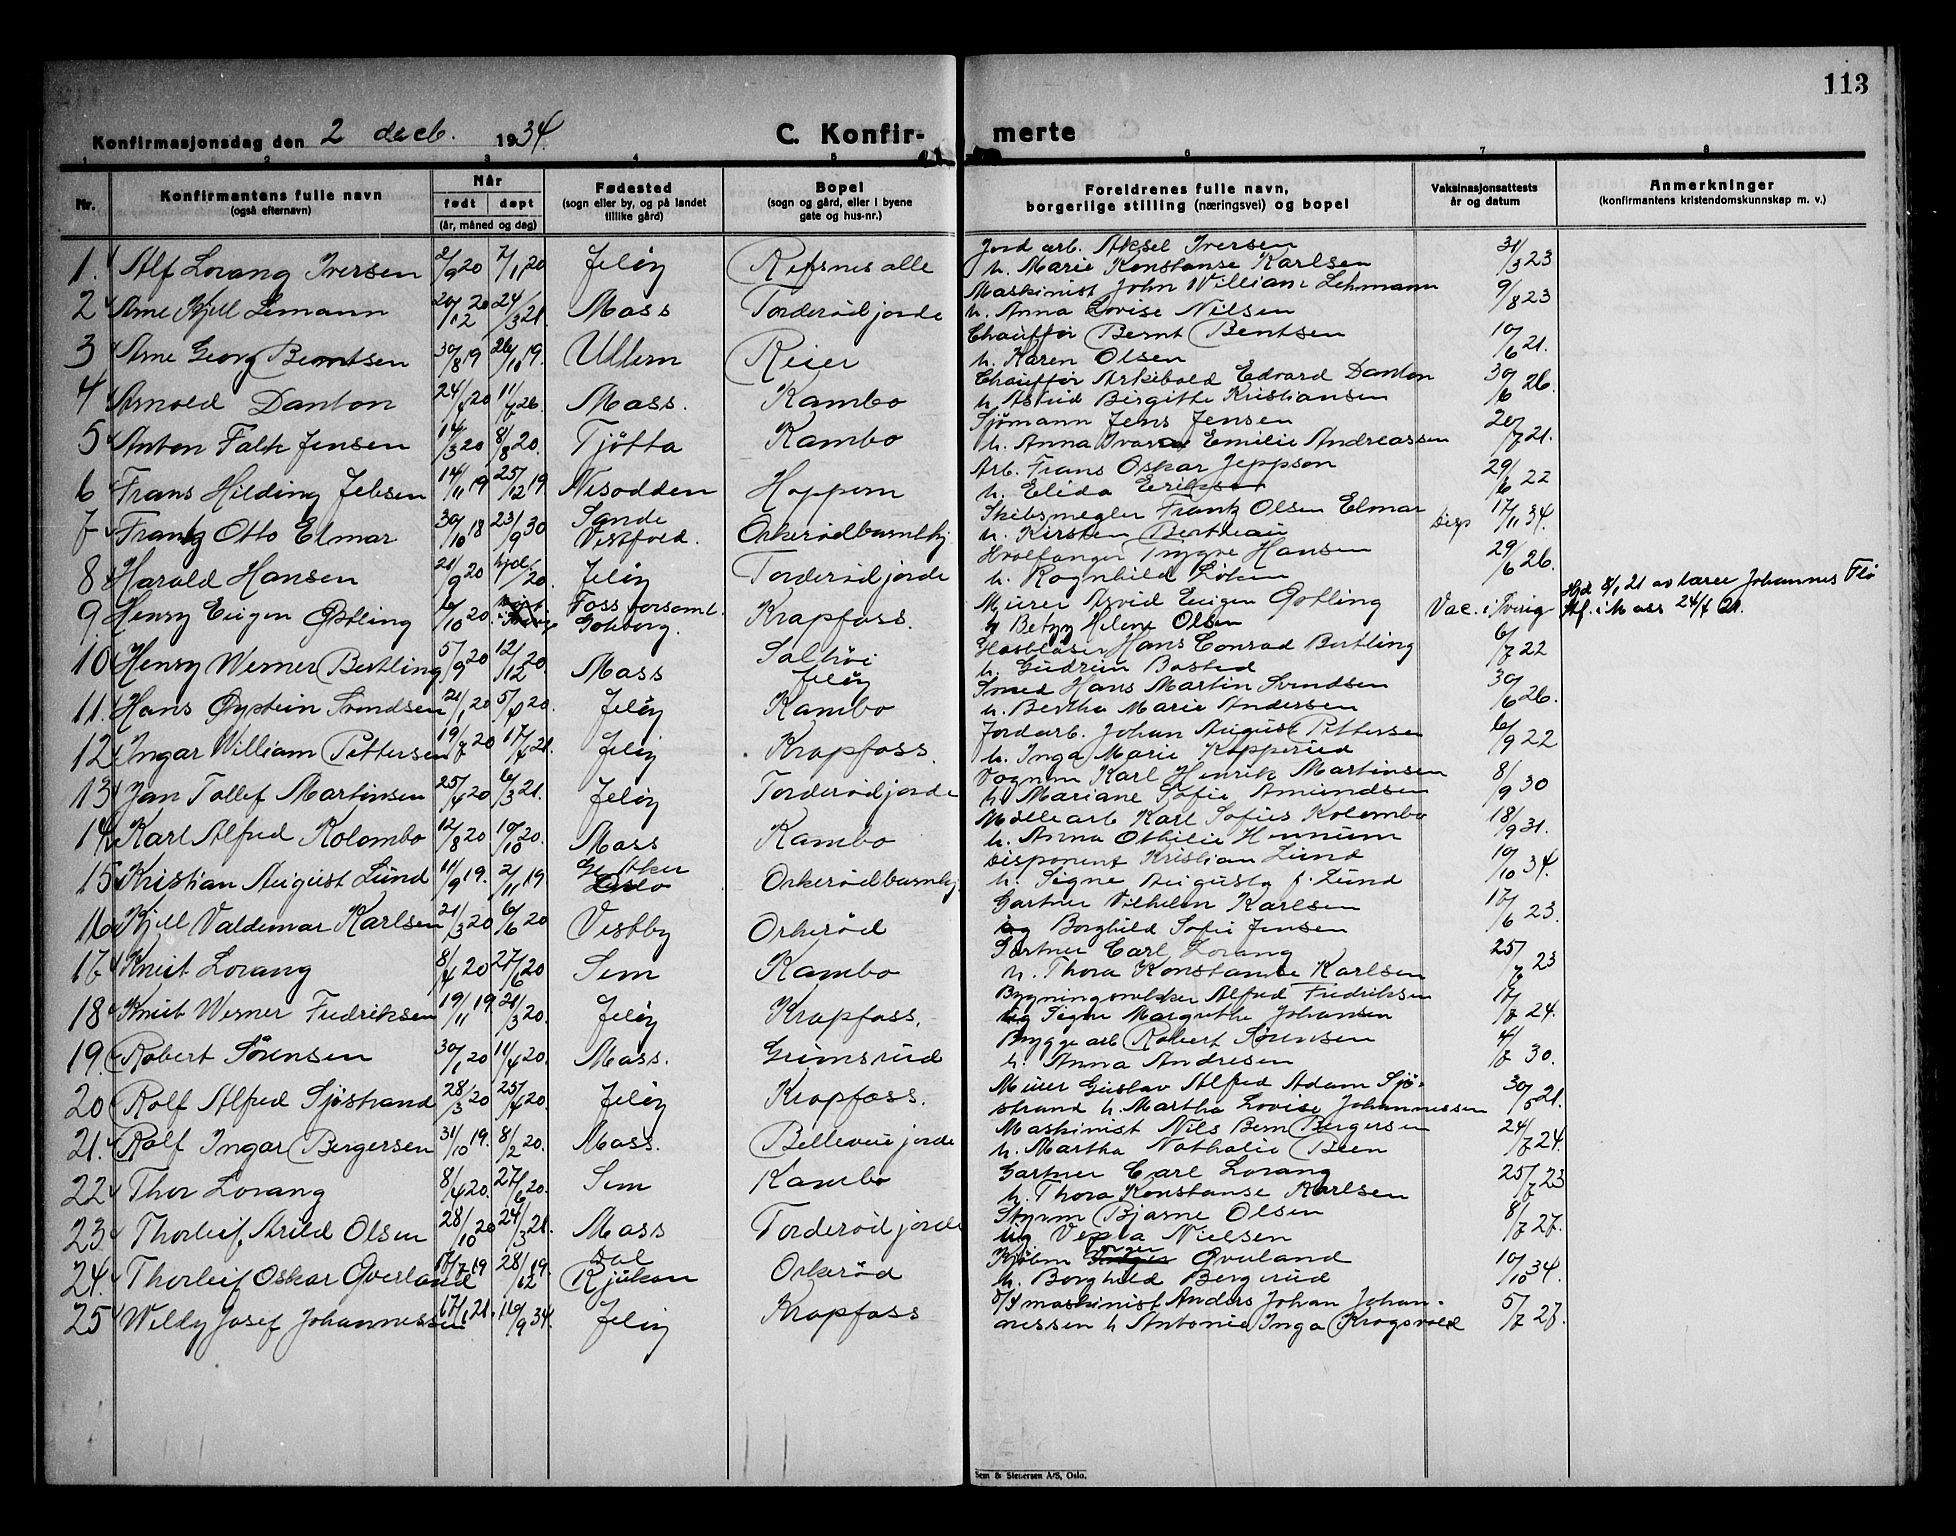 113
Konfirmasjonsdag den 2 decb. 1934.
C. Konfir- merte
1 2 3 4 5 6 7 8
Nr. | Konfirmantens fulle navn (også efternavn) | Når født døpt (år, måned og dag) | Fødested (sogn eller by, og på landet tillike gård) | Bopel (sogn og gård, eller i byene gate og hus-nr.) | Foreldrenes fulle navn, borgerlige stilling (næringsvei) og bopel | Vaksinasjonsattests år og datum | Anmerkninger (konfirmantens kristendomskunnskap m. v.)
1. Alf Lorang Iversen 2/9 20 7/11 20 Jeløy Refsnes alle Jord arb. Aksel Iversen
h. Marie Konstanse Karlsen 31/3 23
2 Arne Kjell Lemann 20/12 20 24/3 21. Moss Torderød jorde Maskinist John William Lehmann
h. Anna Lovise Nilsen 9/8 23
3 Arne Georg Berntsen 30/8 19 26/10 19. Ullern Reier Chauffør Bernt Bentsen
h. Karen Olsen 10/6 21.
4 Arnold Danton 24/7 20 11/7 26. Moss. Kambo Chauffør Arkibald Edvard Danton
h. Astrid Birgitte Kristiansen 30/6 26.
5 Anton Falk Jensen 14/3 20 8/8 20. Tjøtta Kambo Sjømann Jens Jensen
h. Anna Emilie Andreassen 20/7 21.
6 Frans Hilding Jebsen 14/11 19 25/12 19 Nesodden Hoppern Arb. Frans Oskar Jeppson
h. Elida Eriksen 29/6 22
7 Frantz Otto Elmar 30/10 18 23/9 30 Sande Vestfold. Orkerødbarnehj. Skibsmegler Frantz Olsen Elmar
h. Kirsten Bertheau Disp 17/11 34.
8 Harald Hansen 21/9 20 hjd. 20. Jeløy Torderød jorde Hvalfanger Trygve Hansen
h. Ragnhild Løken 29/6 26. Hjd 8/1 21 av lærer Johannes Flø
9 Henry Eugen Østling 6/10 20. Foss forsaml. Goteborg. Krapfoss. Murer Arvid Eugen Østling
h Betzy Helene Olsen Vac. i Sverig Stf. i Moss 24/7 21.
10 Henry Werner Bertling 5/9 20 12/12 20 Moss Solhøi Jeløy Glasblåser Hans Conrad Bertling
h. Gudrun Basted 6/7 22
11. Hans Øystein Svendsen 21/1 20 5/4 20. Jeløy Kambo Smed Hans Martin Svendsen
h. Bertha Marie Andersen 30/6 26.
12 Ingar William Pettersen 19/7 20 17/7 21. Jeløy Krapfoss. Jordarb. Johan August Pettersen
h. Inga Marie Kopperud 6/9 22
13 Jan Tollef Martinsen 25/4 20 6/3 21. Jeløy Torderød jorde Vognm Karl Henrik Martinsen
h. Mariane Sofie Amundsen 8/9 30
14 Karl Alfred Kolombo 12/8 20 10/10 20. Moss Kambo Møllearb Karl Sofus Kolombo
h. Anna Othilie Hennum 18/9 31.
15 Kristian August Lund 11/9 19. 2/11 19 Aker Oslo Orkerødbarnehj Disponent Kristian Lund
h. Signe Augusta f. Lund 10/10 34.
16 Kjell Valdemar Karlsen 21/3 20 6/6 20 Vestby Orkerød Gartner Vilhelm Karlsen
og Borghild Sofie Jensen 17/6 23.
17 Knut Lorang 8/4 20 27/6 20 Sem Kambo Gartner Carl Lorang
h. Thora Konstanse Karlsen 25/7 23
18 Knut Werner Fredriksen 19/11 19 21/3 20. Jeløy Krapfoss. Bygningssnekker Alfred Fredriksen
og Signe Margrethe Johansen 17/7 24.
19. Robert Sørensen 30/1 20 11/4 20. Moss. Grimsrud Bryggearb Robert Sørensen
h. Anna Andresen 4/7 30.
20 Rolf Alfred Sjøstrand 28/3 20 25/7 20. Jeløy Krapfoss. Murer Gustav Alfred Adam Sjø-
strand h. Martha Lovise Johannessen 30/5 21.
21. Rolf Ingar Bergersen 31/10 19. 8/2 20. Moss. Bellevue jorde Maskinist Nils Bern Bergersen
h. Martha Nathalie Been 24/7 24.
22 Thor Lorang 8/4 20. 27/6 20. Sem Kambo Gartner Carl Lorang
h. Thora Konstanse Karlsen 25/7 23
23 Thorleif Arild Olsen 28/10 20 24/3 21. Moss Torderød jorde Styrm Bjarne Olsen
og Vesla Nielsen 8/7 27.
24. Thorleif Oskar Øverland 17/7 19 28/12 19. Dal Rjukan Orkerød Kjøbm Øverland
h. Borghild Bergerud 10/10 34.
25 Willy Josef Johannessen 17/1 21. 16/9 34. Jeløy Krapfoss maskinist Anders Johan Johan-
nessen h Antonie Inga Krogsvold 5/7 27.
Sem & Stenersen A/S, Oslo.